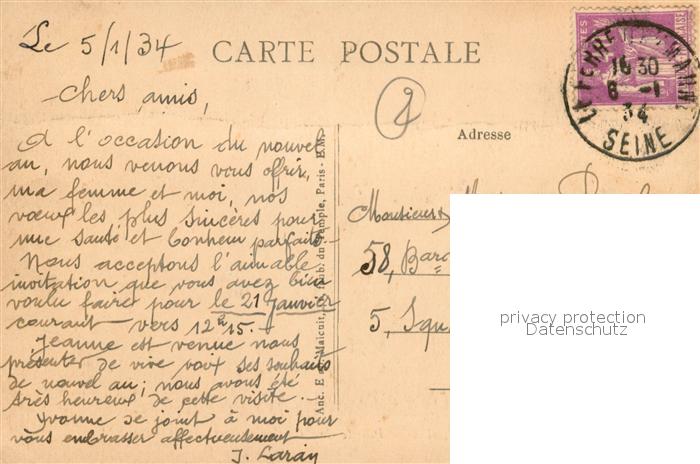 Le 5/1/34
CARTE POSTALE
16 30
6 -1
34
SEINE
Chers amis,
Adresse
A l'occasion du nouvel
an, nous venons vous offrir,
ma femme et moi, nos
vœux les plus sincères pour
une santé et bonheur parfaits.-
Nous acceptons l'aimable
invitation que vous avez bien
voulu faire pour le 21 Janvier
courant vers 12h15.-
Jeanne est venue nous
présenter de vive voix ses souhaits
de nouvel an; nous avons été
très heureux de cette visite.-
Yvonne se joint à moi pour
vous embrasser affectueusement
J. Laray
Anc. E Maicuit, Faub. du Temple, Paris - E.M.
Monsieur
58, Bar
5, Squ
privacy protection
Datenschutz